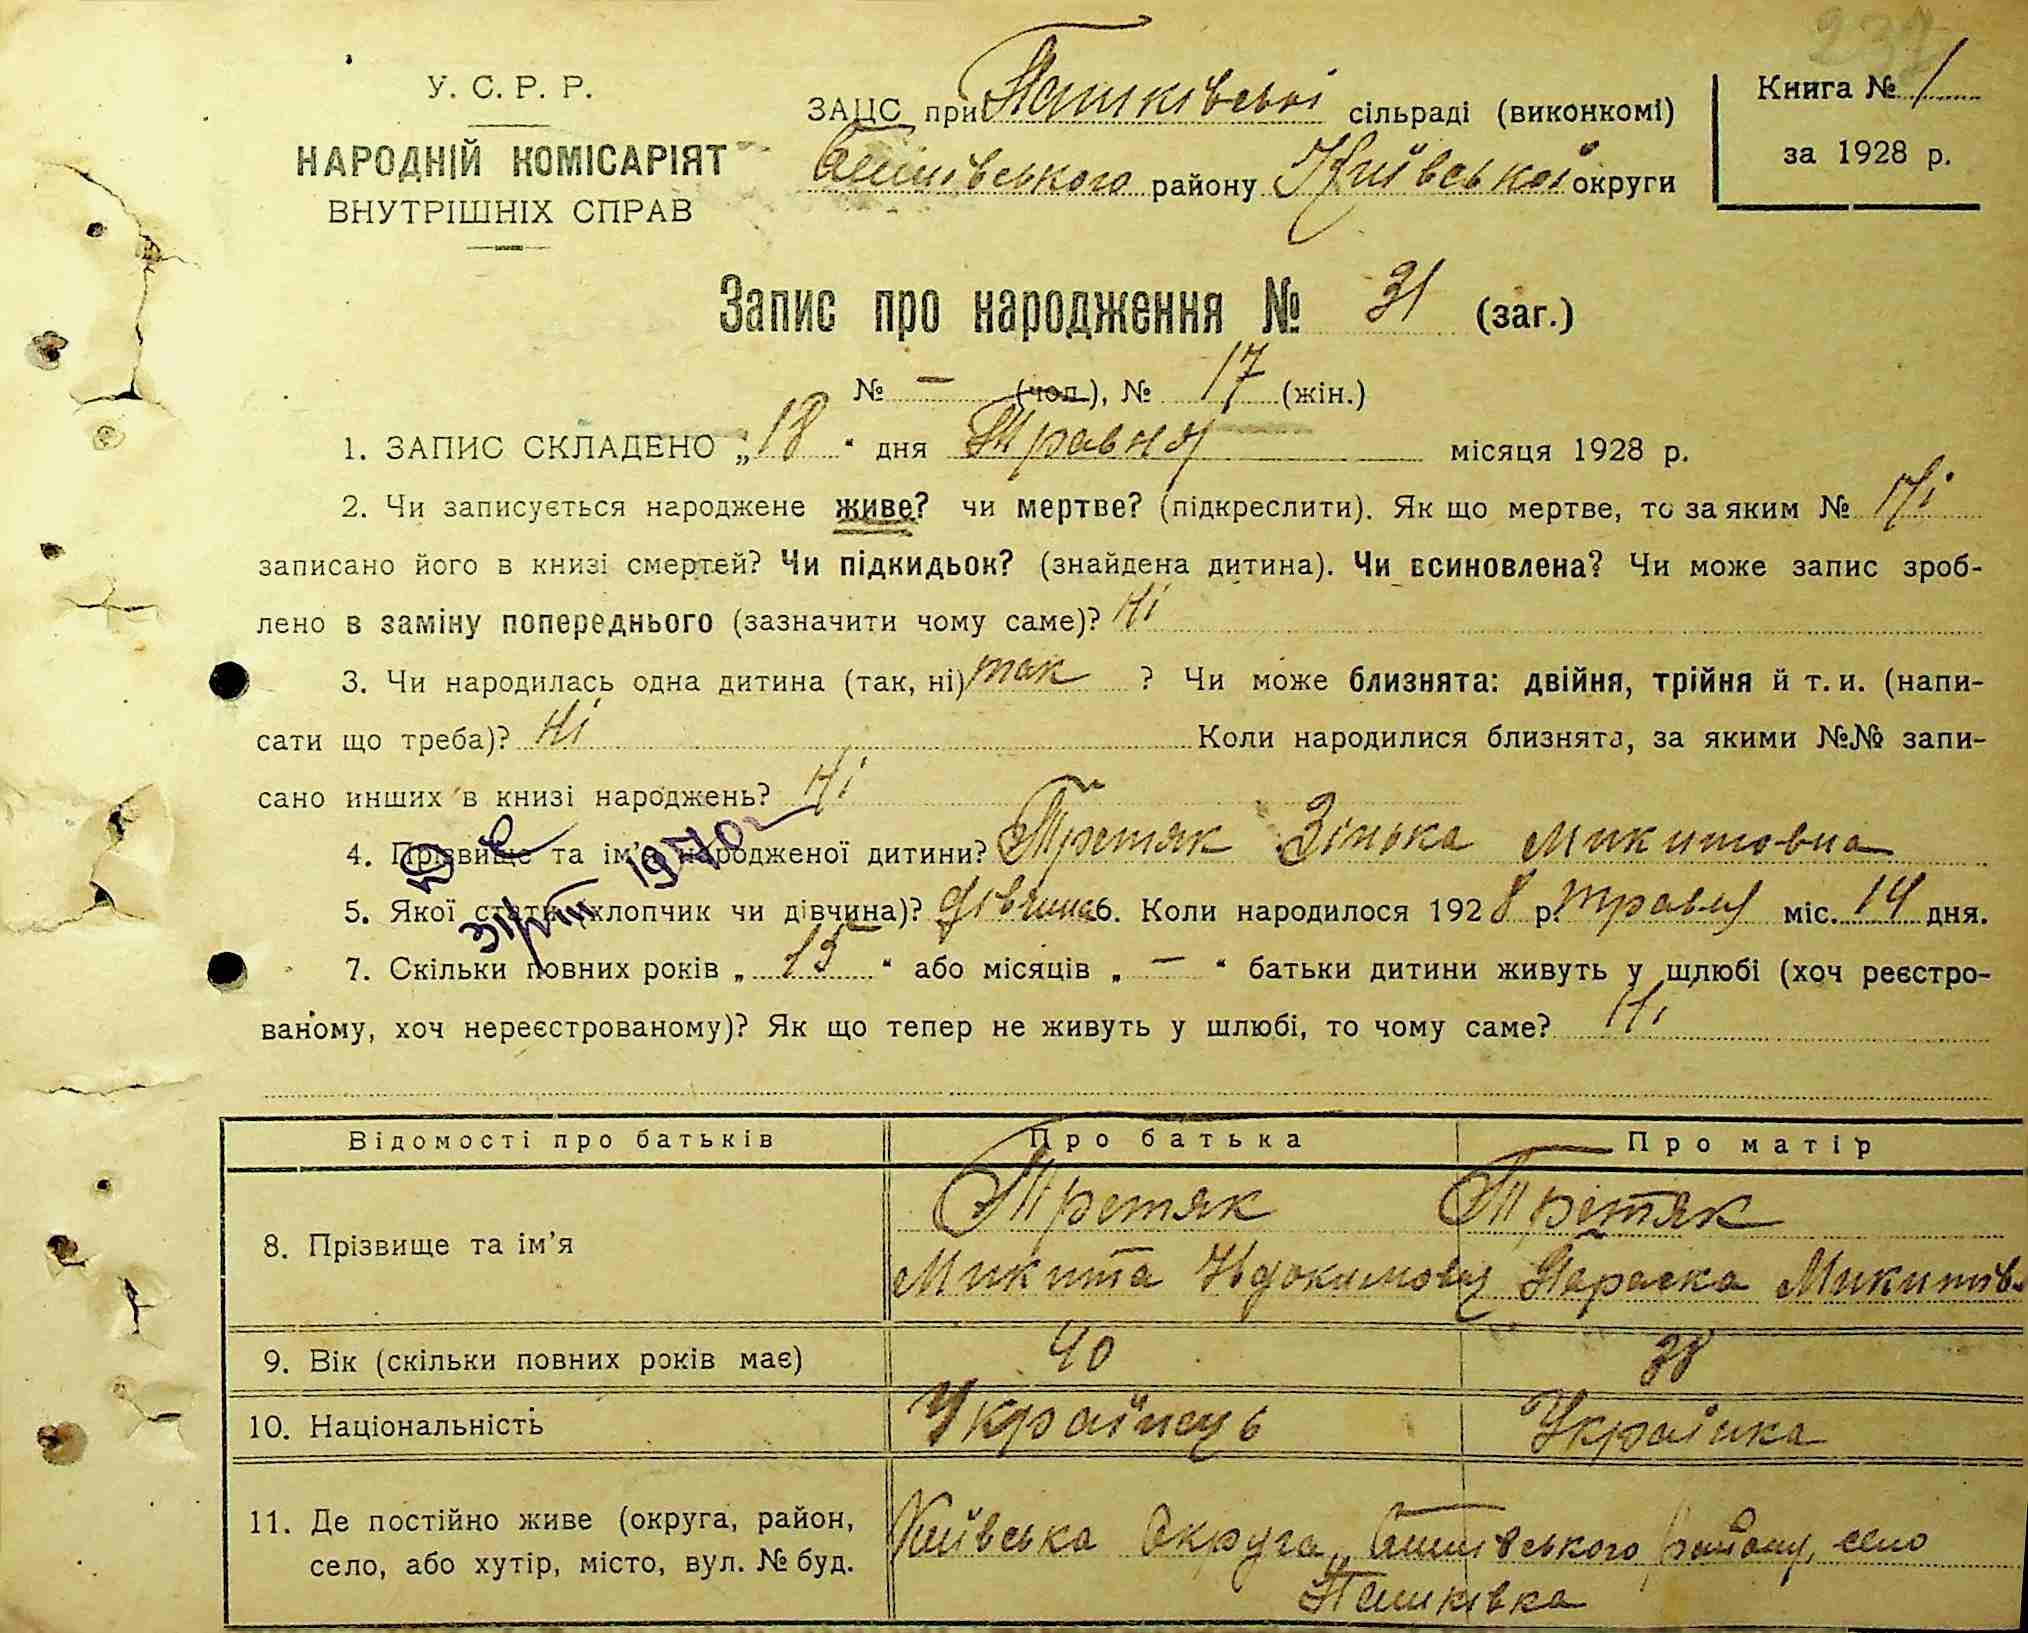 237
У. С. Р. Р.
НАРОДНІЙ КОМІСАРІЯТ
ВНУТРІШНІХ СПРАВ
ЗАЦС при Пашківські сільраді (виконкомі)
району Київської округи
Книга № 1
за 1928 р.
Запис про народження № 31 (заг.)
№ — (чол.), № 17 (жін.)
1. ЗАПИС СКЛАДЕНО „18“ дня Травня місяця 1928 р.
2. Чи записується народжене живе? чи мертве? (підкреслити). Як що мертве, то за яким № Ні
записано його в книзі смертей? Чи підкидьок? (знайдена дитина). Чи всиновлена? Чи може запис зроб-
лено в заміну попереднього (зазначити чому саме)? Ні
3. Чи народилась одна дитина (так, ні) так ? Чи може близнята: двійня, трійня й т. и. (напи-
сати що треба)? Ні Коли народилися близнята, за якими №№ запи-
сано инших в книзі народжень? Ні
4. Прізвище та ім'я народженої дитини? Третяк Зінька Микитовна
5. Якої статі (хлопчик чи дівчина)? дівчина 6. Коли народилося 1928 р. травня міс. 14 дня.
1970
7. Скільки повних років „ 15 “ або місяців „ — “ батьки дитини живуть у шлюбі (хоч реєстро-
ваному, хоч нереєстрованому)? Як що тепер не живуть у шлюбі, то чому саме? Ні
Відомості про батьків Про батька Про матір
8. Прізвище та ім'я Третяк Третяк
Микита Параска Микитів-
9. Вік (скільки повних років має) 40 38
10. Національність Українець Українка
11. Де постійно живе (округа, район, Київська округа, району, село
село, або хутір, місто, вул. № буд. Пашківка